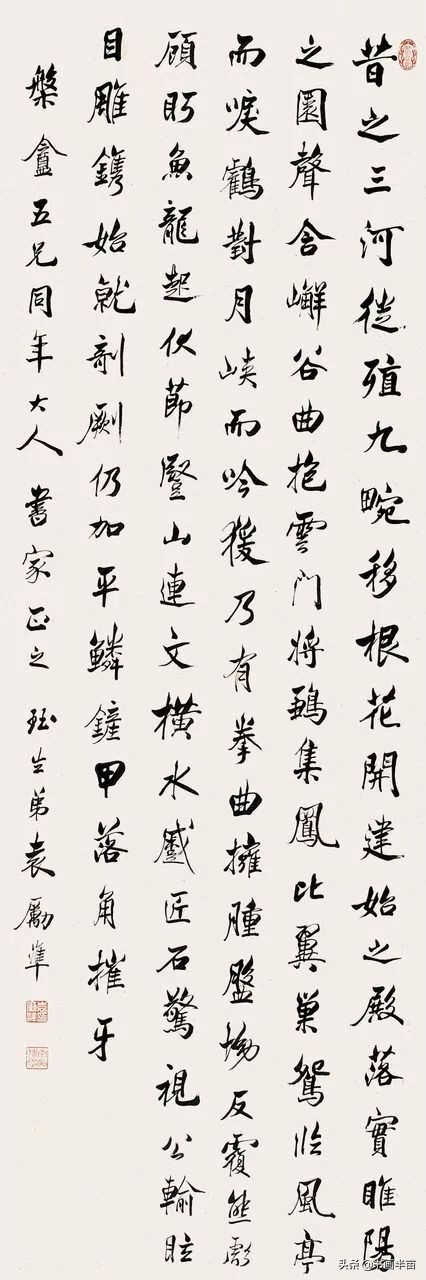 昔之三河徙殖九畹移根花開建始之殿落實睢陽
之園聲含嶰谷曲抱雲門將鵷集鳳比翼巢鴛臨風亭
而唳鶴對月峽而吟猨乃有拳曲擁腫盤坳反覆熊彪
顧盼魚龍起伏節豎山連文橫水蹙匠石驚視公輸眩
目雕鐫始就剞劂仍加平鱗鏟甲落角摧牙
槃盦五兄同年大人 書家正之 珏生弟袁勵準
头条 @书画半亩